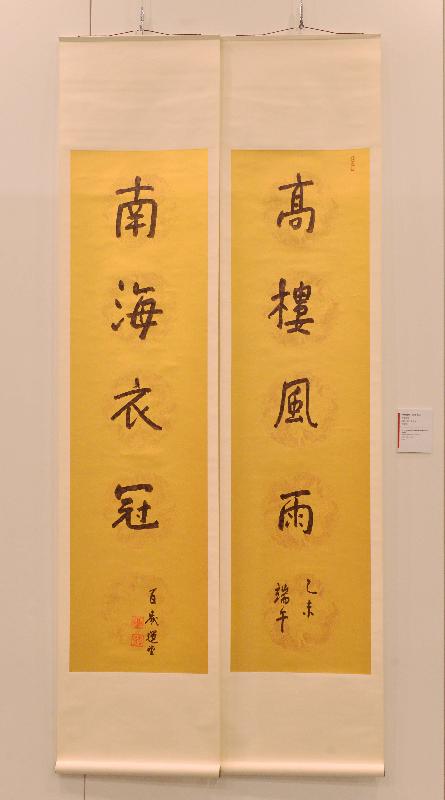 高樓風雨
乙未
端午
南海衣冠
百歲選堂